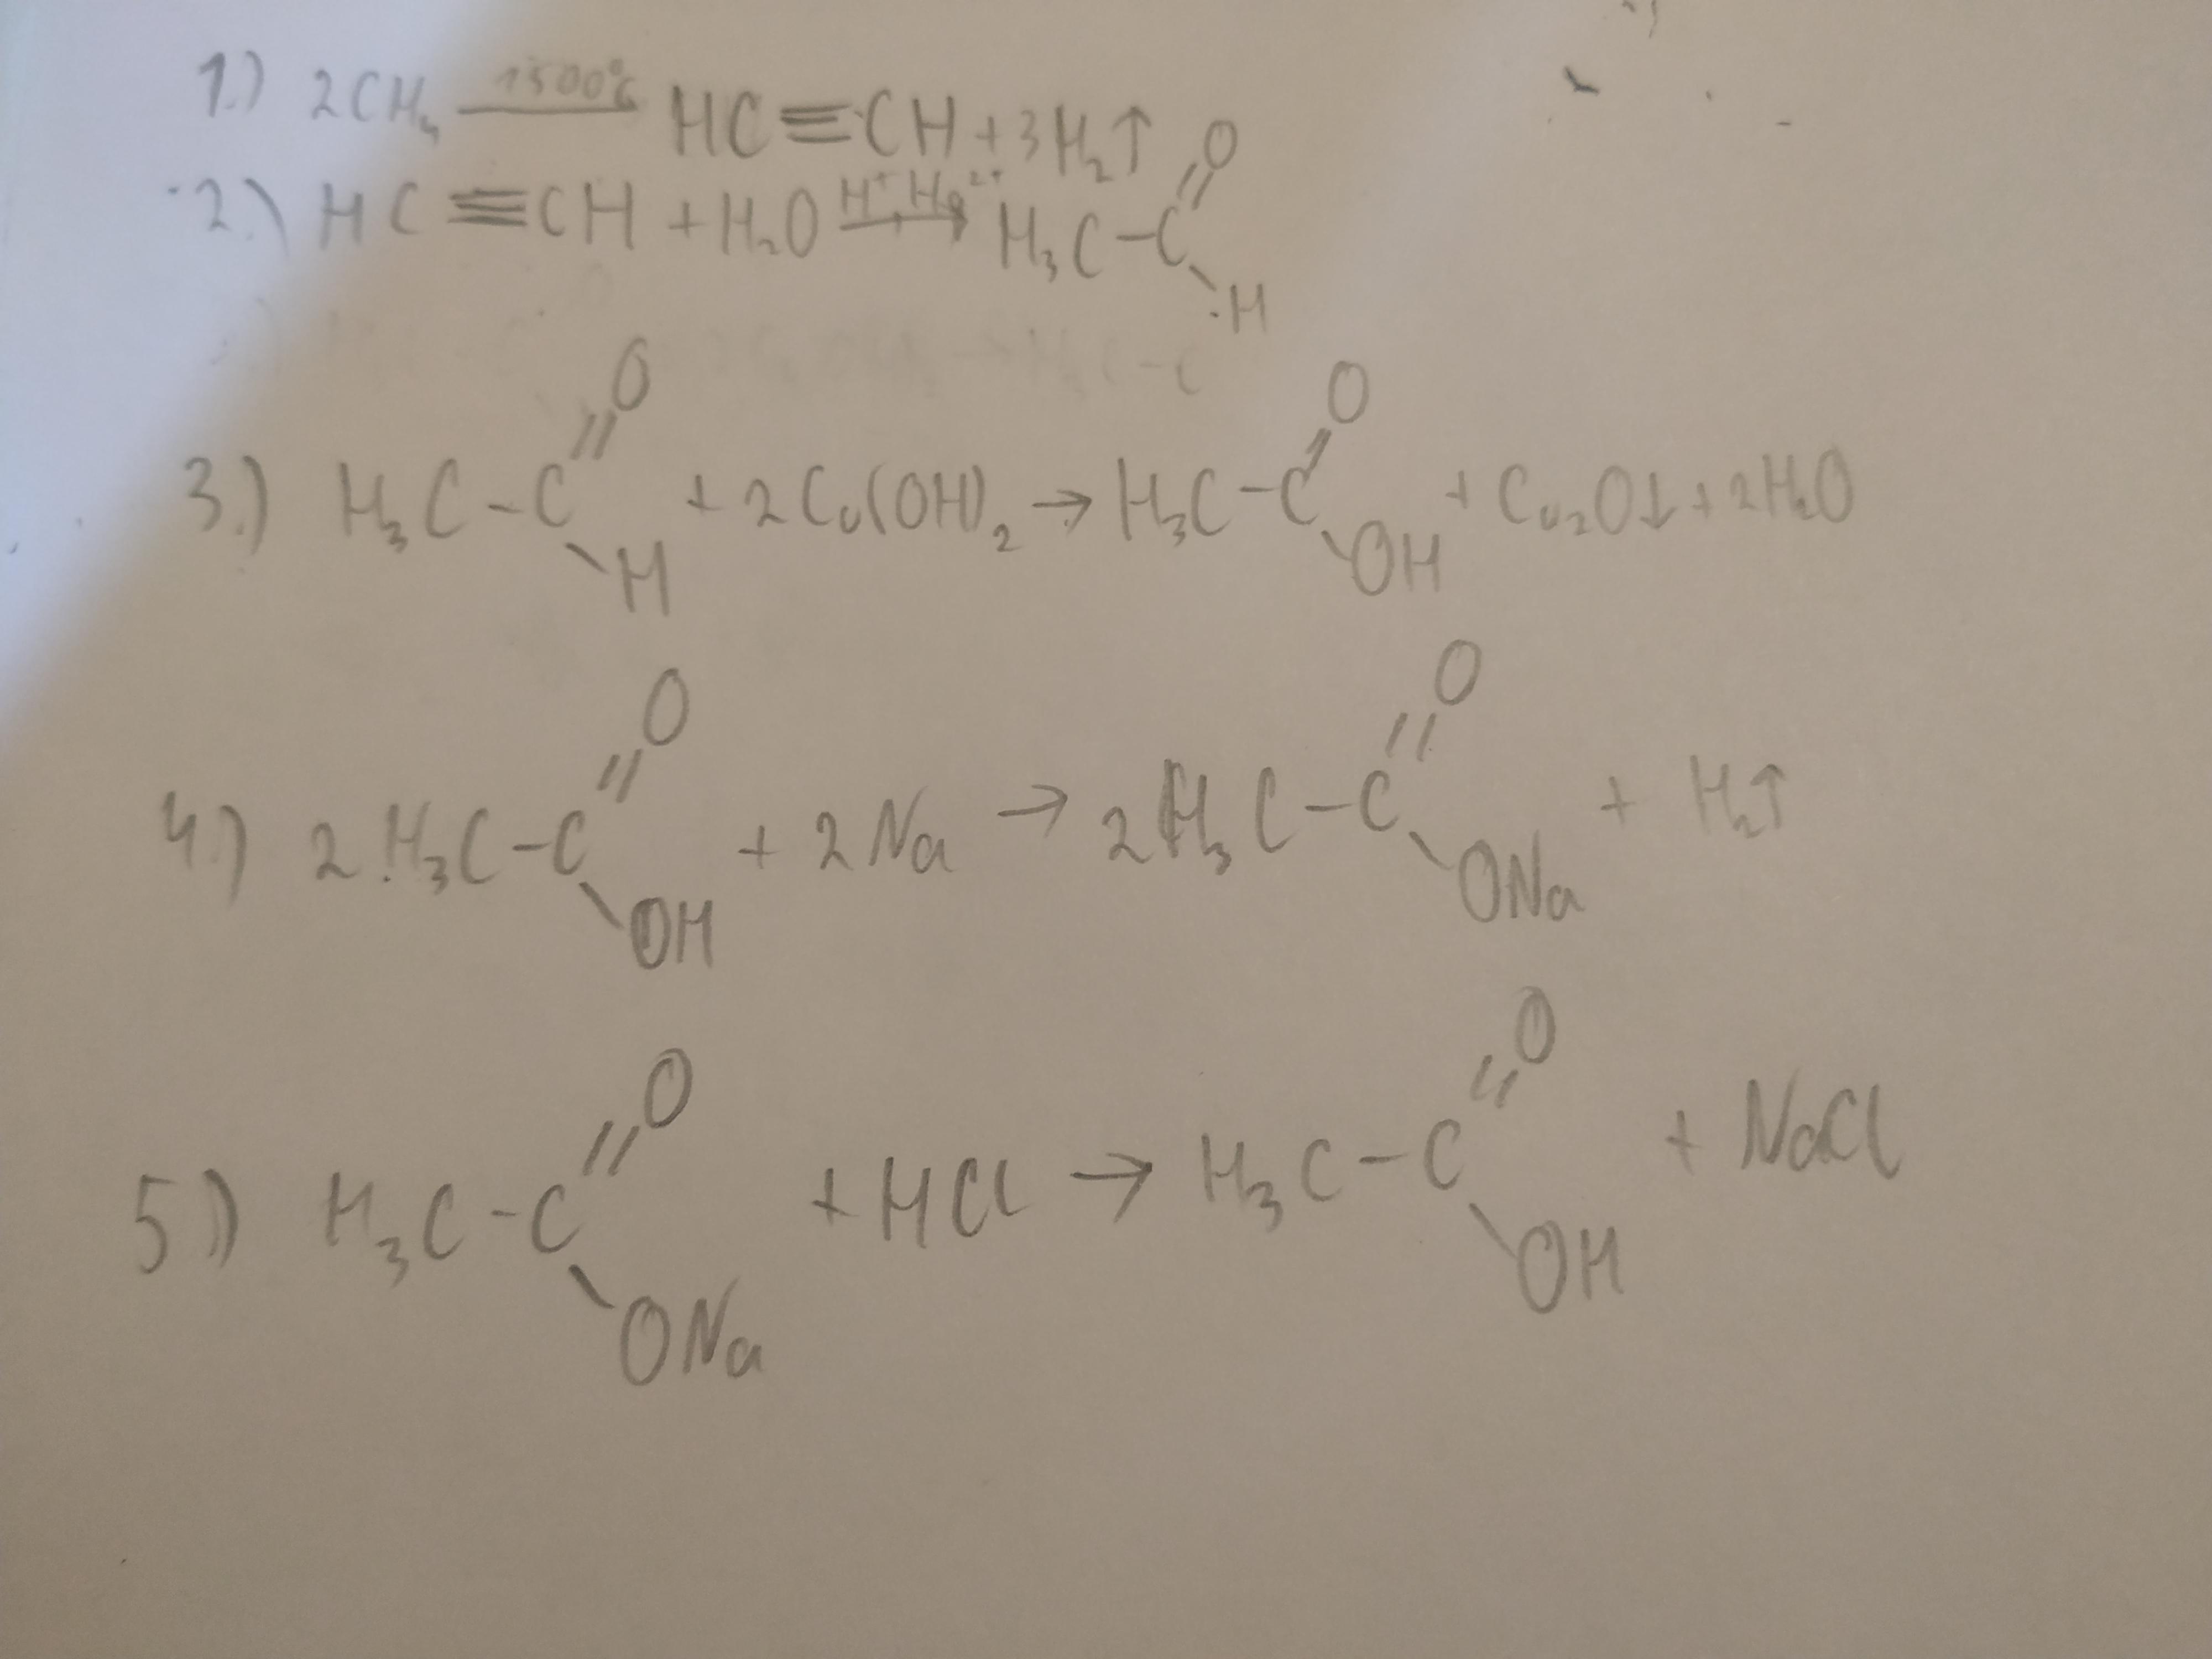 1.) 2CH₄ —1500°C— HC≡CH + 3H₂↑
2.) HC≡CH + H₂O —H⁺, Hg²⁺→ H₃C–C(=O)–H
3.) H₃C–C(=O)–H + 2Cu(OH)₂ → H₃C–C(=O)–OH + Cu₂O↓ + 2H₂O
4.) 2H₃C–C(=O)–OH + 2Na → 2H₃C–C(=O)–ONa + H₂↑
5.) H₃C–C(=O)–ONa + HCl → H₃C–C(=O)–OH + NaCl